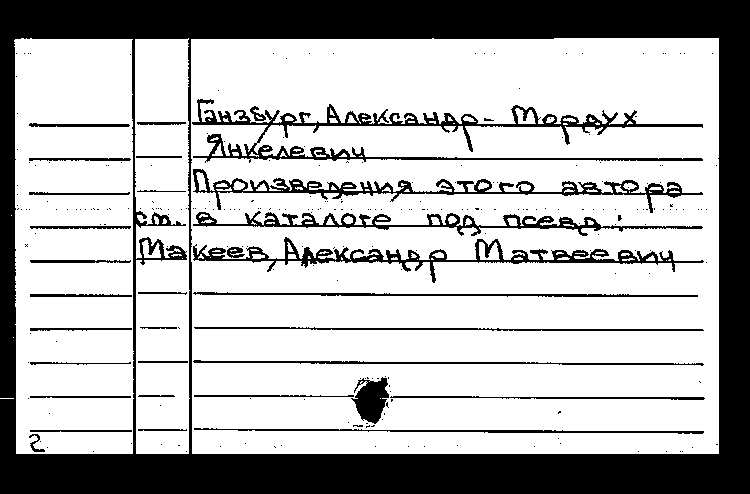 Ганзбург, Александр-Мордух
Янкелевич
Произведения этого автора
см. в каталоге под псевд:
Макеев, Александр Матвеевич
2